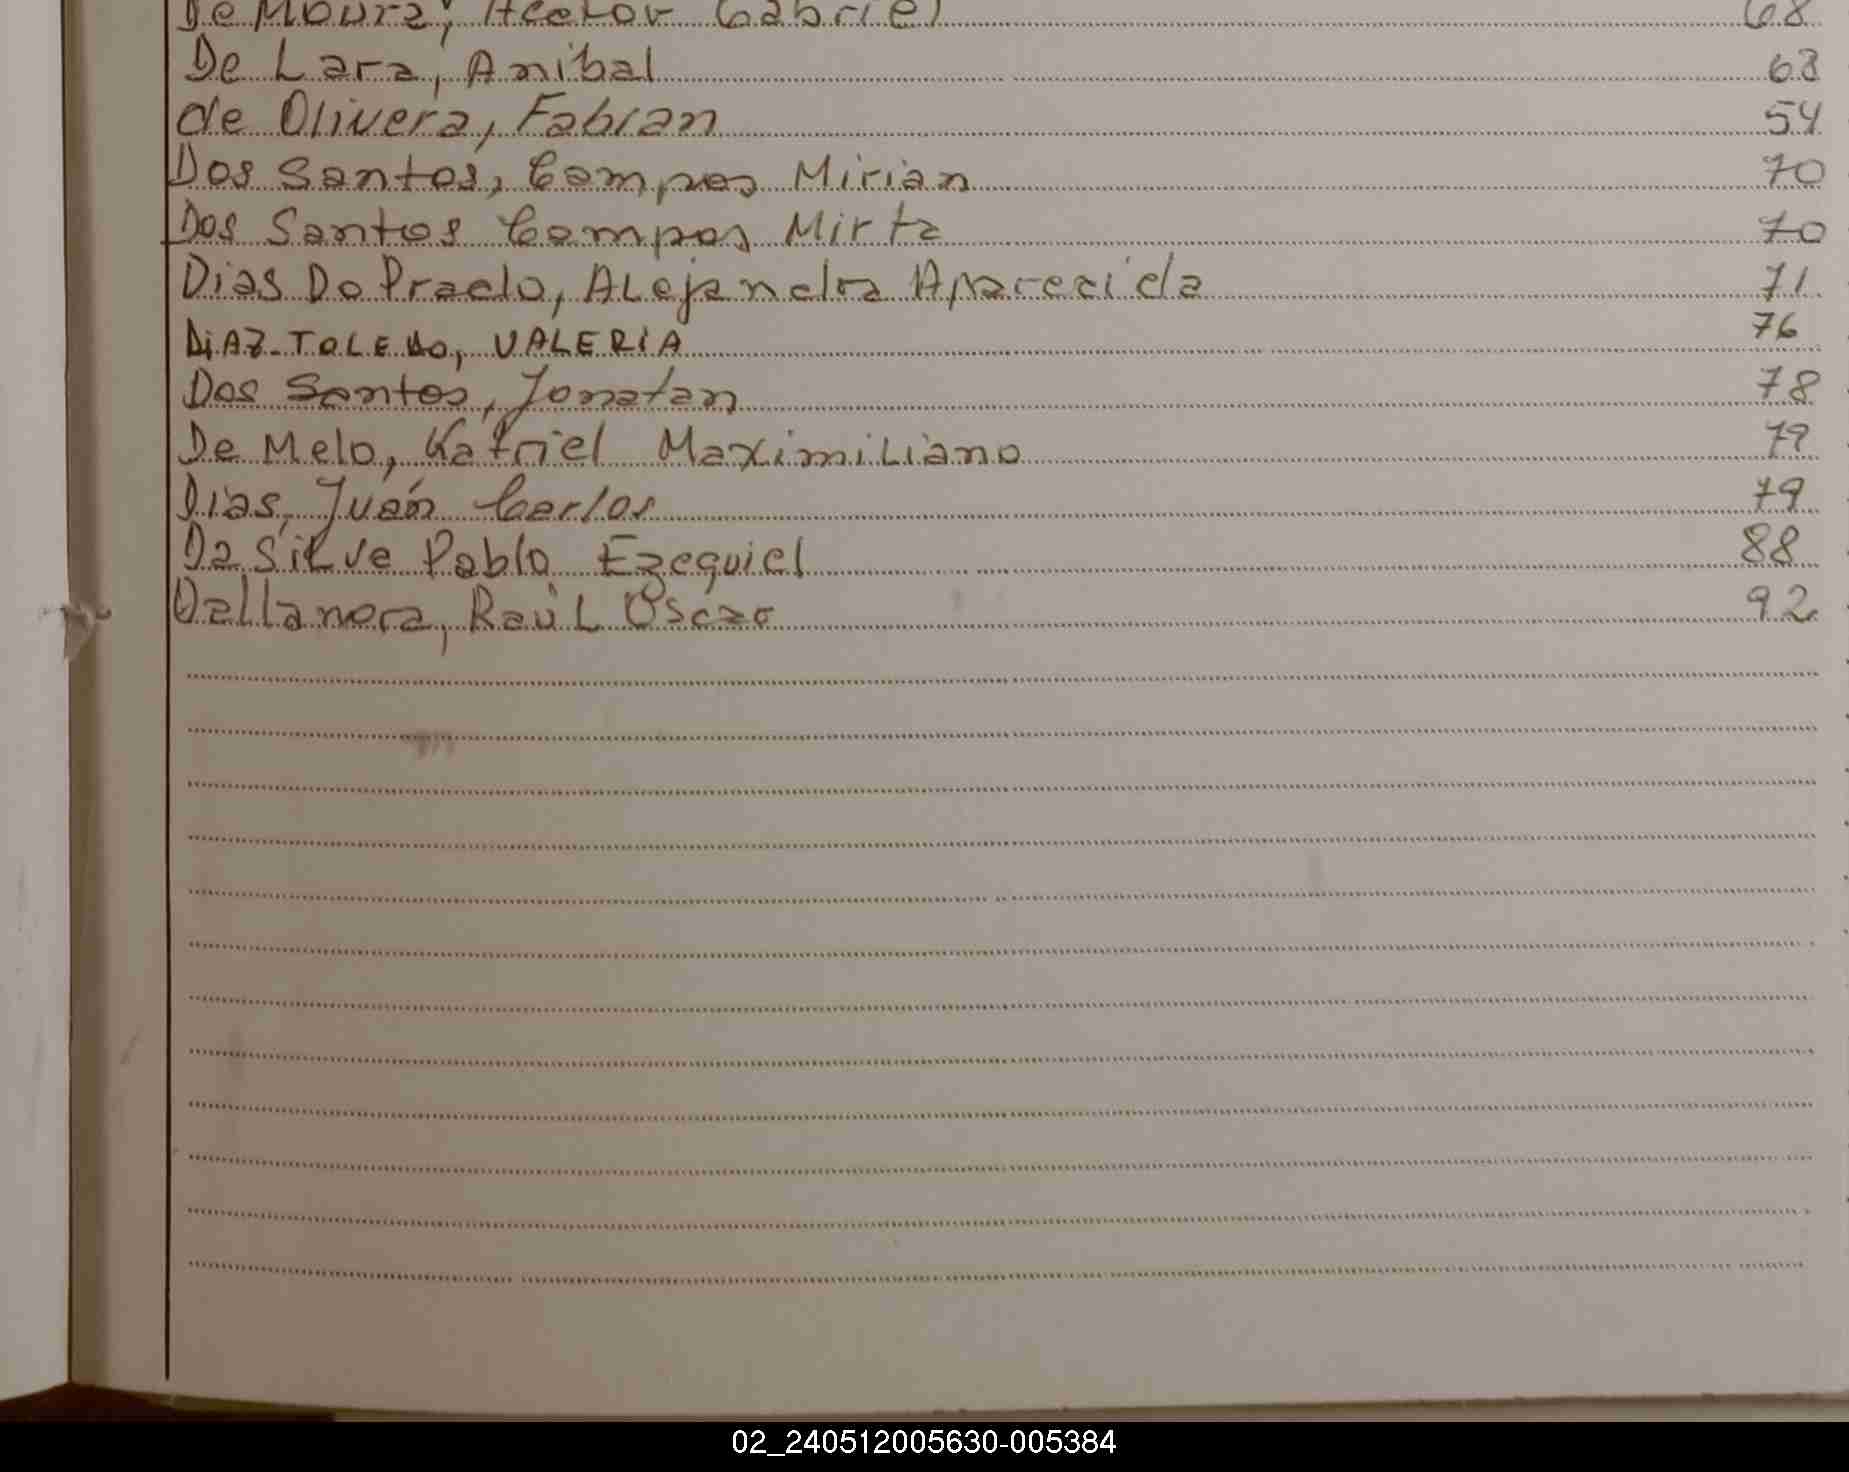 De Moura, Hector Gabriel 68
De Lara, Anibal 68
de Olivera, Fabian 54
Dos Santos, Campos Mirian 70
Dos Santos Campos Mirta 70
Dias Do Prado, ALejandra Aparecida 71
DiAZ-TOLEDO, VALERiA 76
Dos Santos, Jonatan 78
De Melo, Katriel MaximiLiano 79
Dias, Juán Carlos 79
Da SiLva Pablo Ezequiel 88
Dallanora, RaúL Oscar 92
02_240512005630-005384